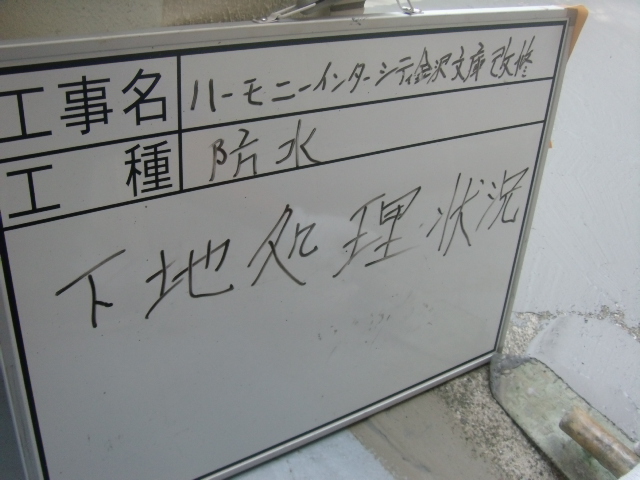 工事名 ハーモニーインターシティ金沢文庫改修
工種 防水
下地処理状況